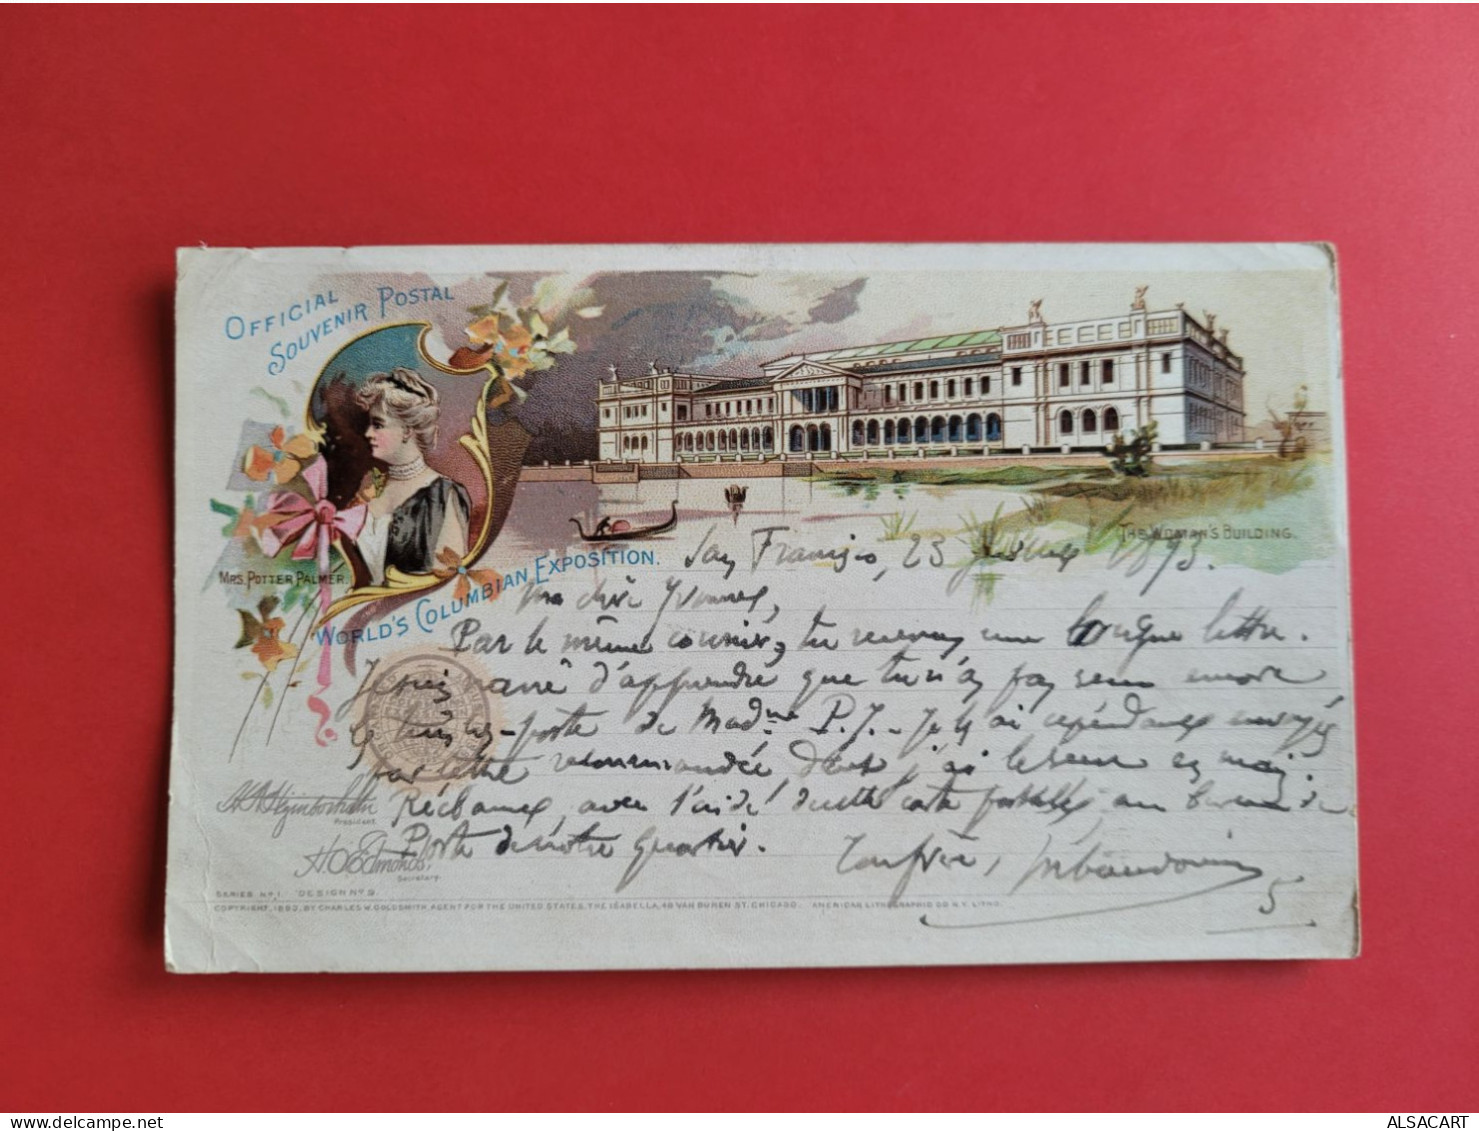 OFFICIAL
SOUVENIR POSTAL
MRS. POTTER PALMER.
WORLD'S COLUMBIAN EXPOSITION.
THE WOMAN'S BUILDING.
San Francisco, 23 1893.
Ma chère Yvonne,
Par le même courrier, tu recevras une longue lettre.
Je suis navré d'apprendre que tu n'as pas reçu encore
le timbre-poste de Madme P.J. - Je l'ai cependant envoyé
par lettre recommandée dont j'ai le reçu en main.
Réclame, avec l'aide de cette carte postale, au bureau de
Poste de notre quartier.
Ton frère,
5
President.
H. O. Edmonds.
Secretary.
SERIES No 1. DESIGN No 9.
COPYRIGHT, 1892, BY CHARLES W. GOLDSMITH AGENT FOR THE UNITED STATES, THE ISABELLA, 48 VAN BUREN ST. CHICAGO. AMERICAN LITHOGRAPHIC CO. N.Y. LITHO.
ALSACART